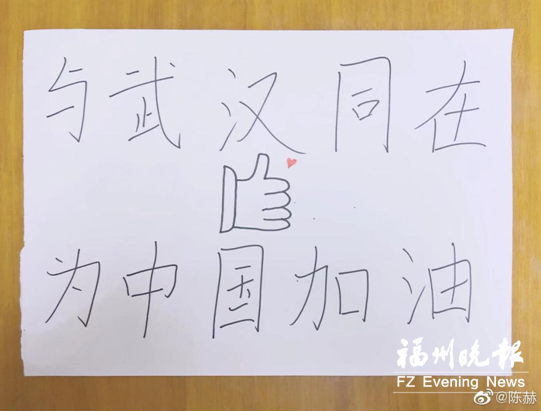 与武汉同在
为中国加油
福州晚报
FZ EVENING NEWS
@陈赫